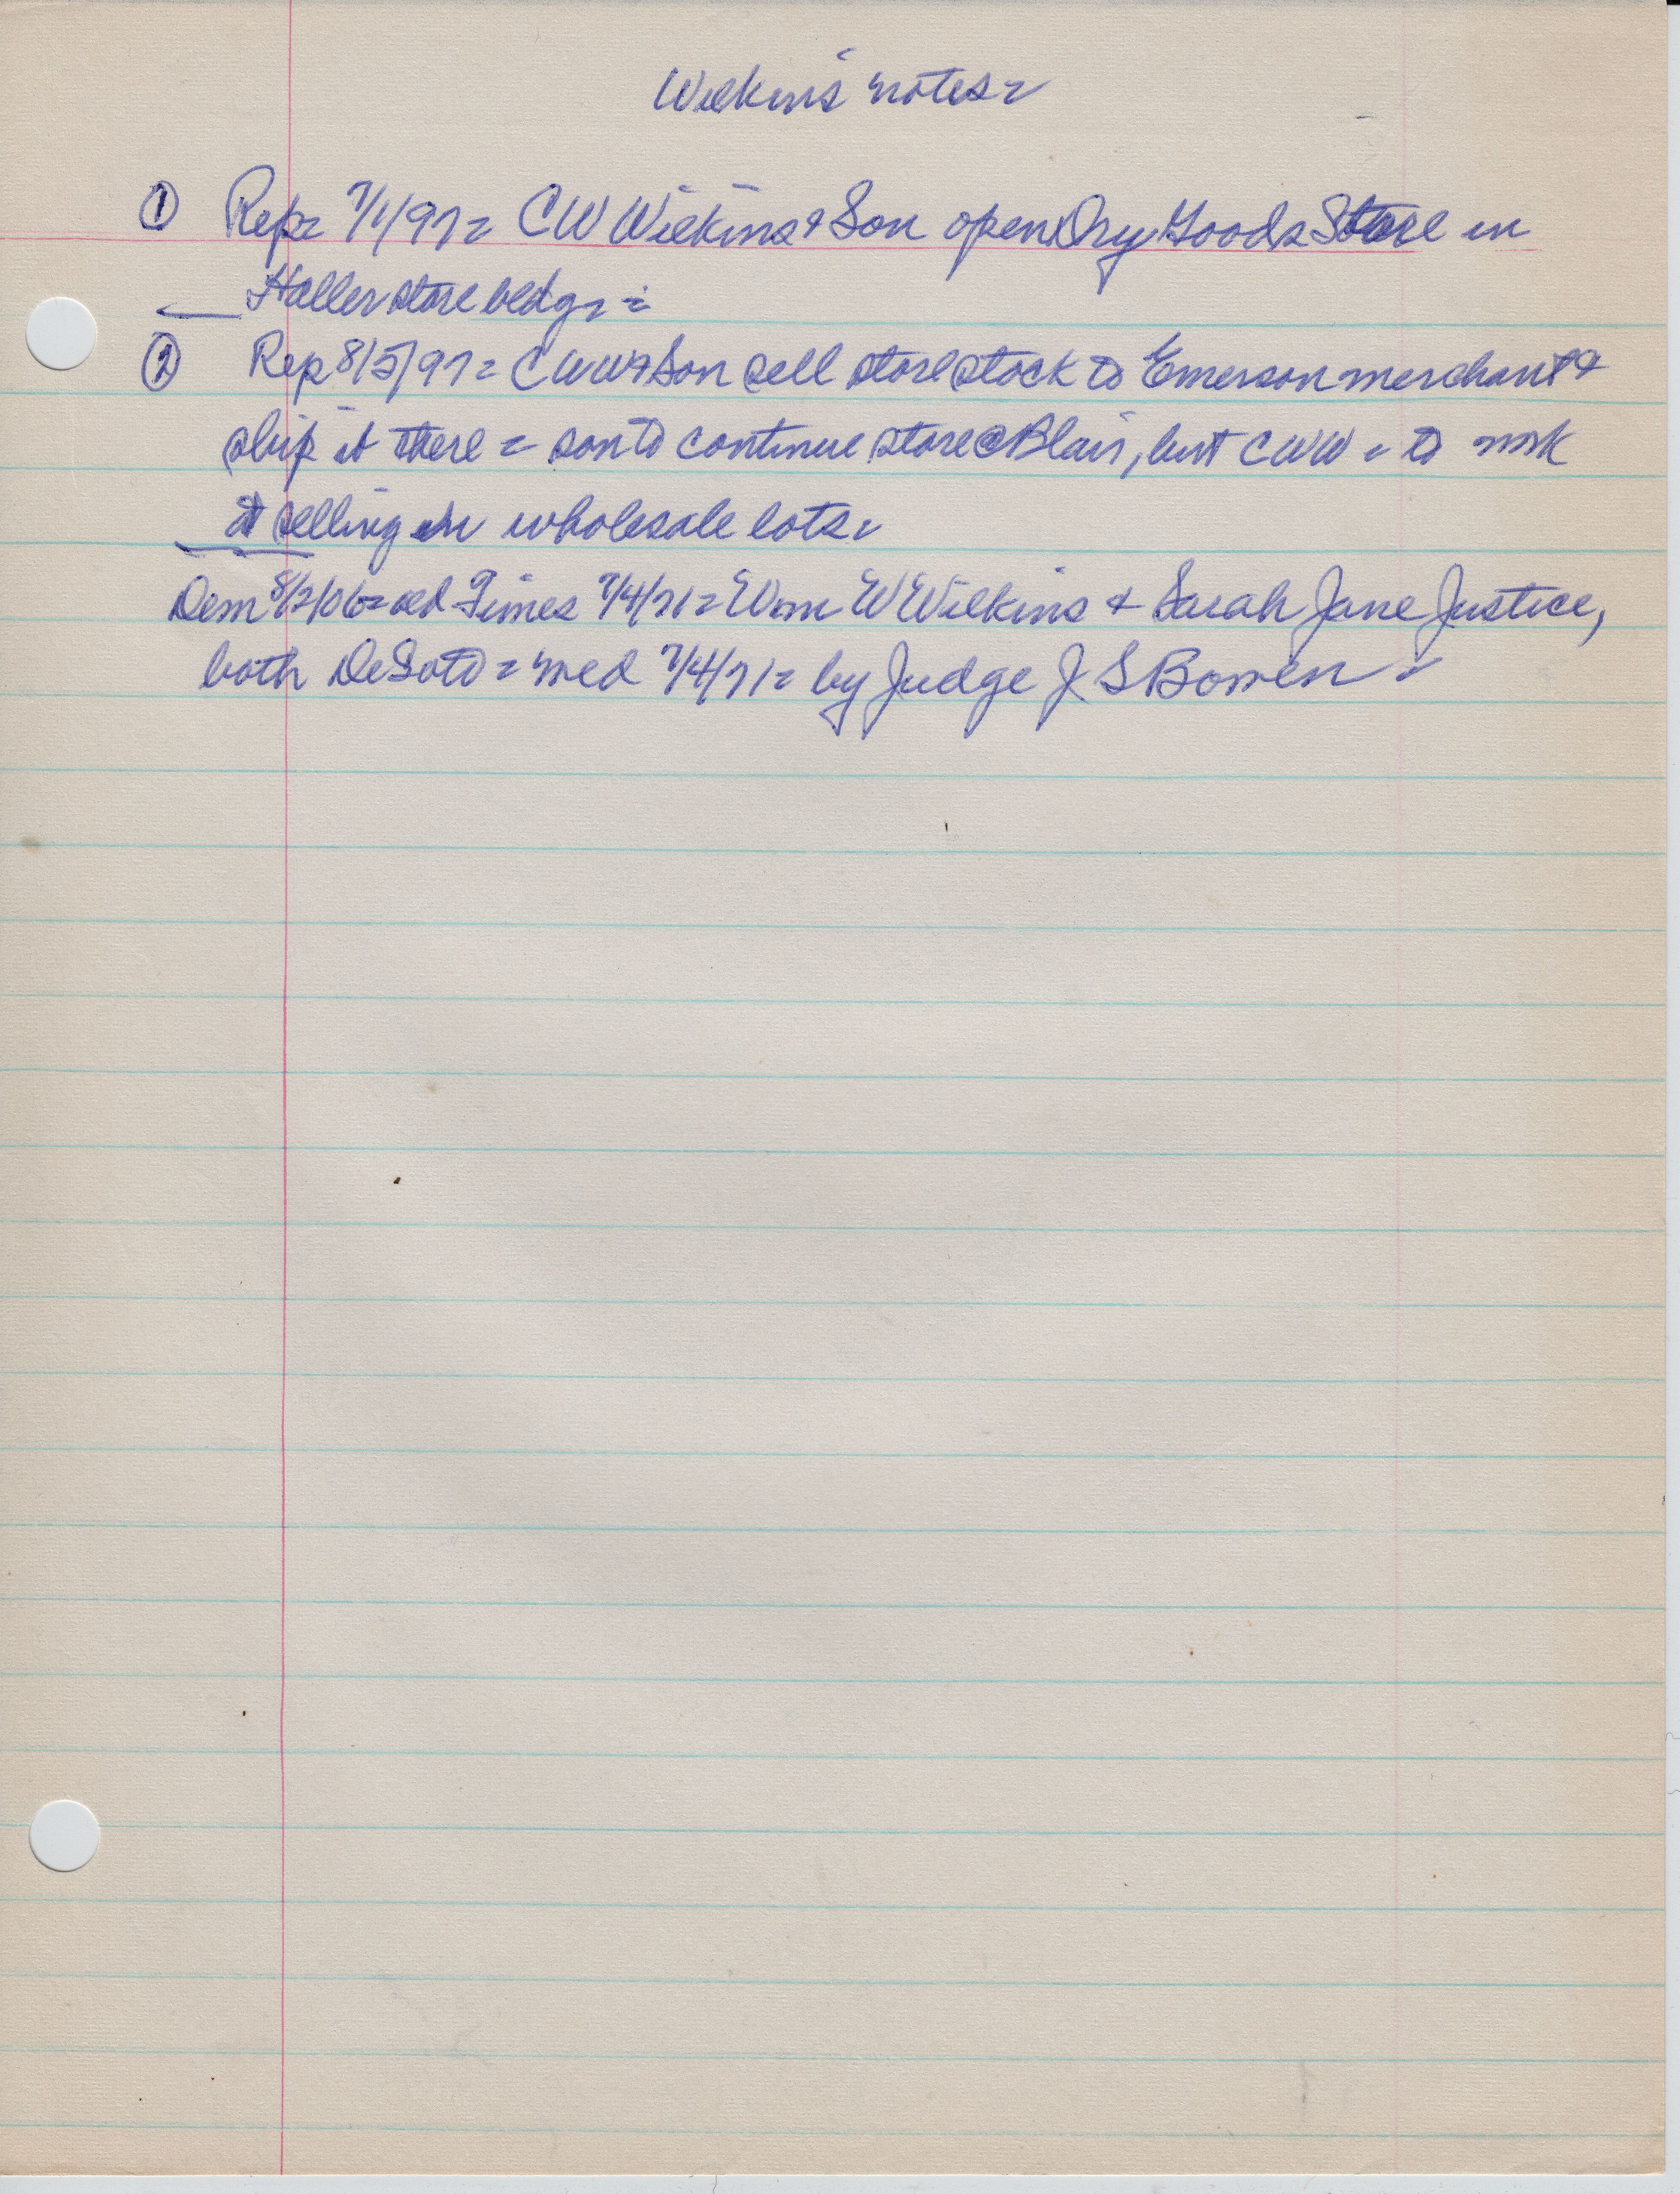 Wilkins notes=
① Rep= 7/1/97= CW Wilkins & Son open Dry Goods Store in
Haller store bldg= =
② Rep 8/5/97= CWW & Son sell store stock to Emerson merchant &
ship it there = son to continue store @ Blair, but CWW = to work
at selling in wholesale lots=
Dem 8/2/06= old Times 7/4/71= Wm W Wilkins & Sarah Jane Justice,
both DeSoto= med 7/4/71= by Judge J S Bowen=